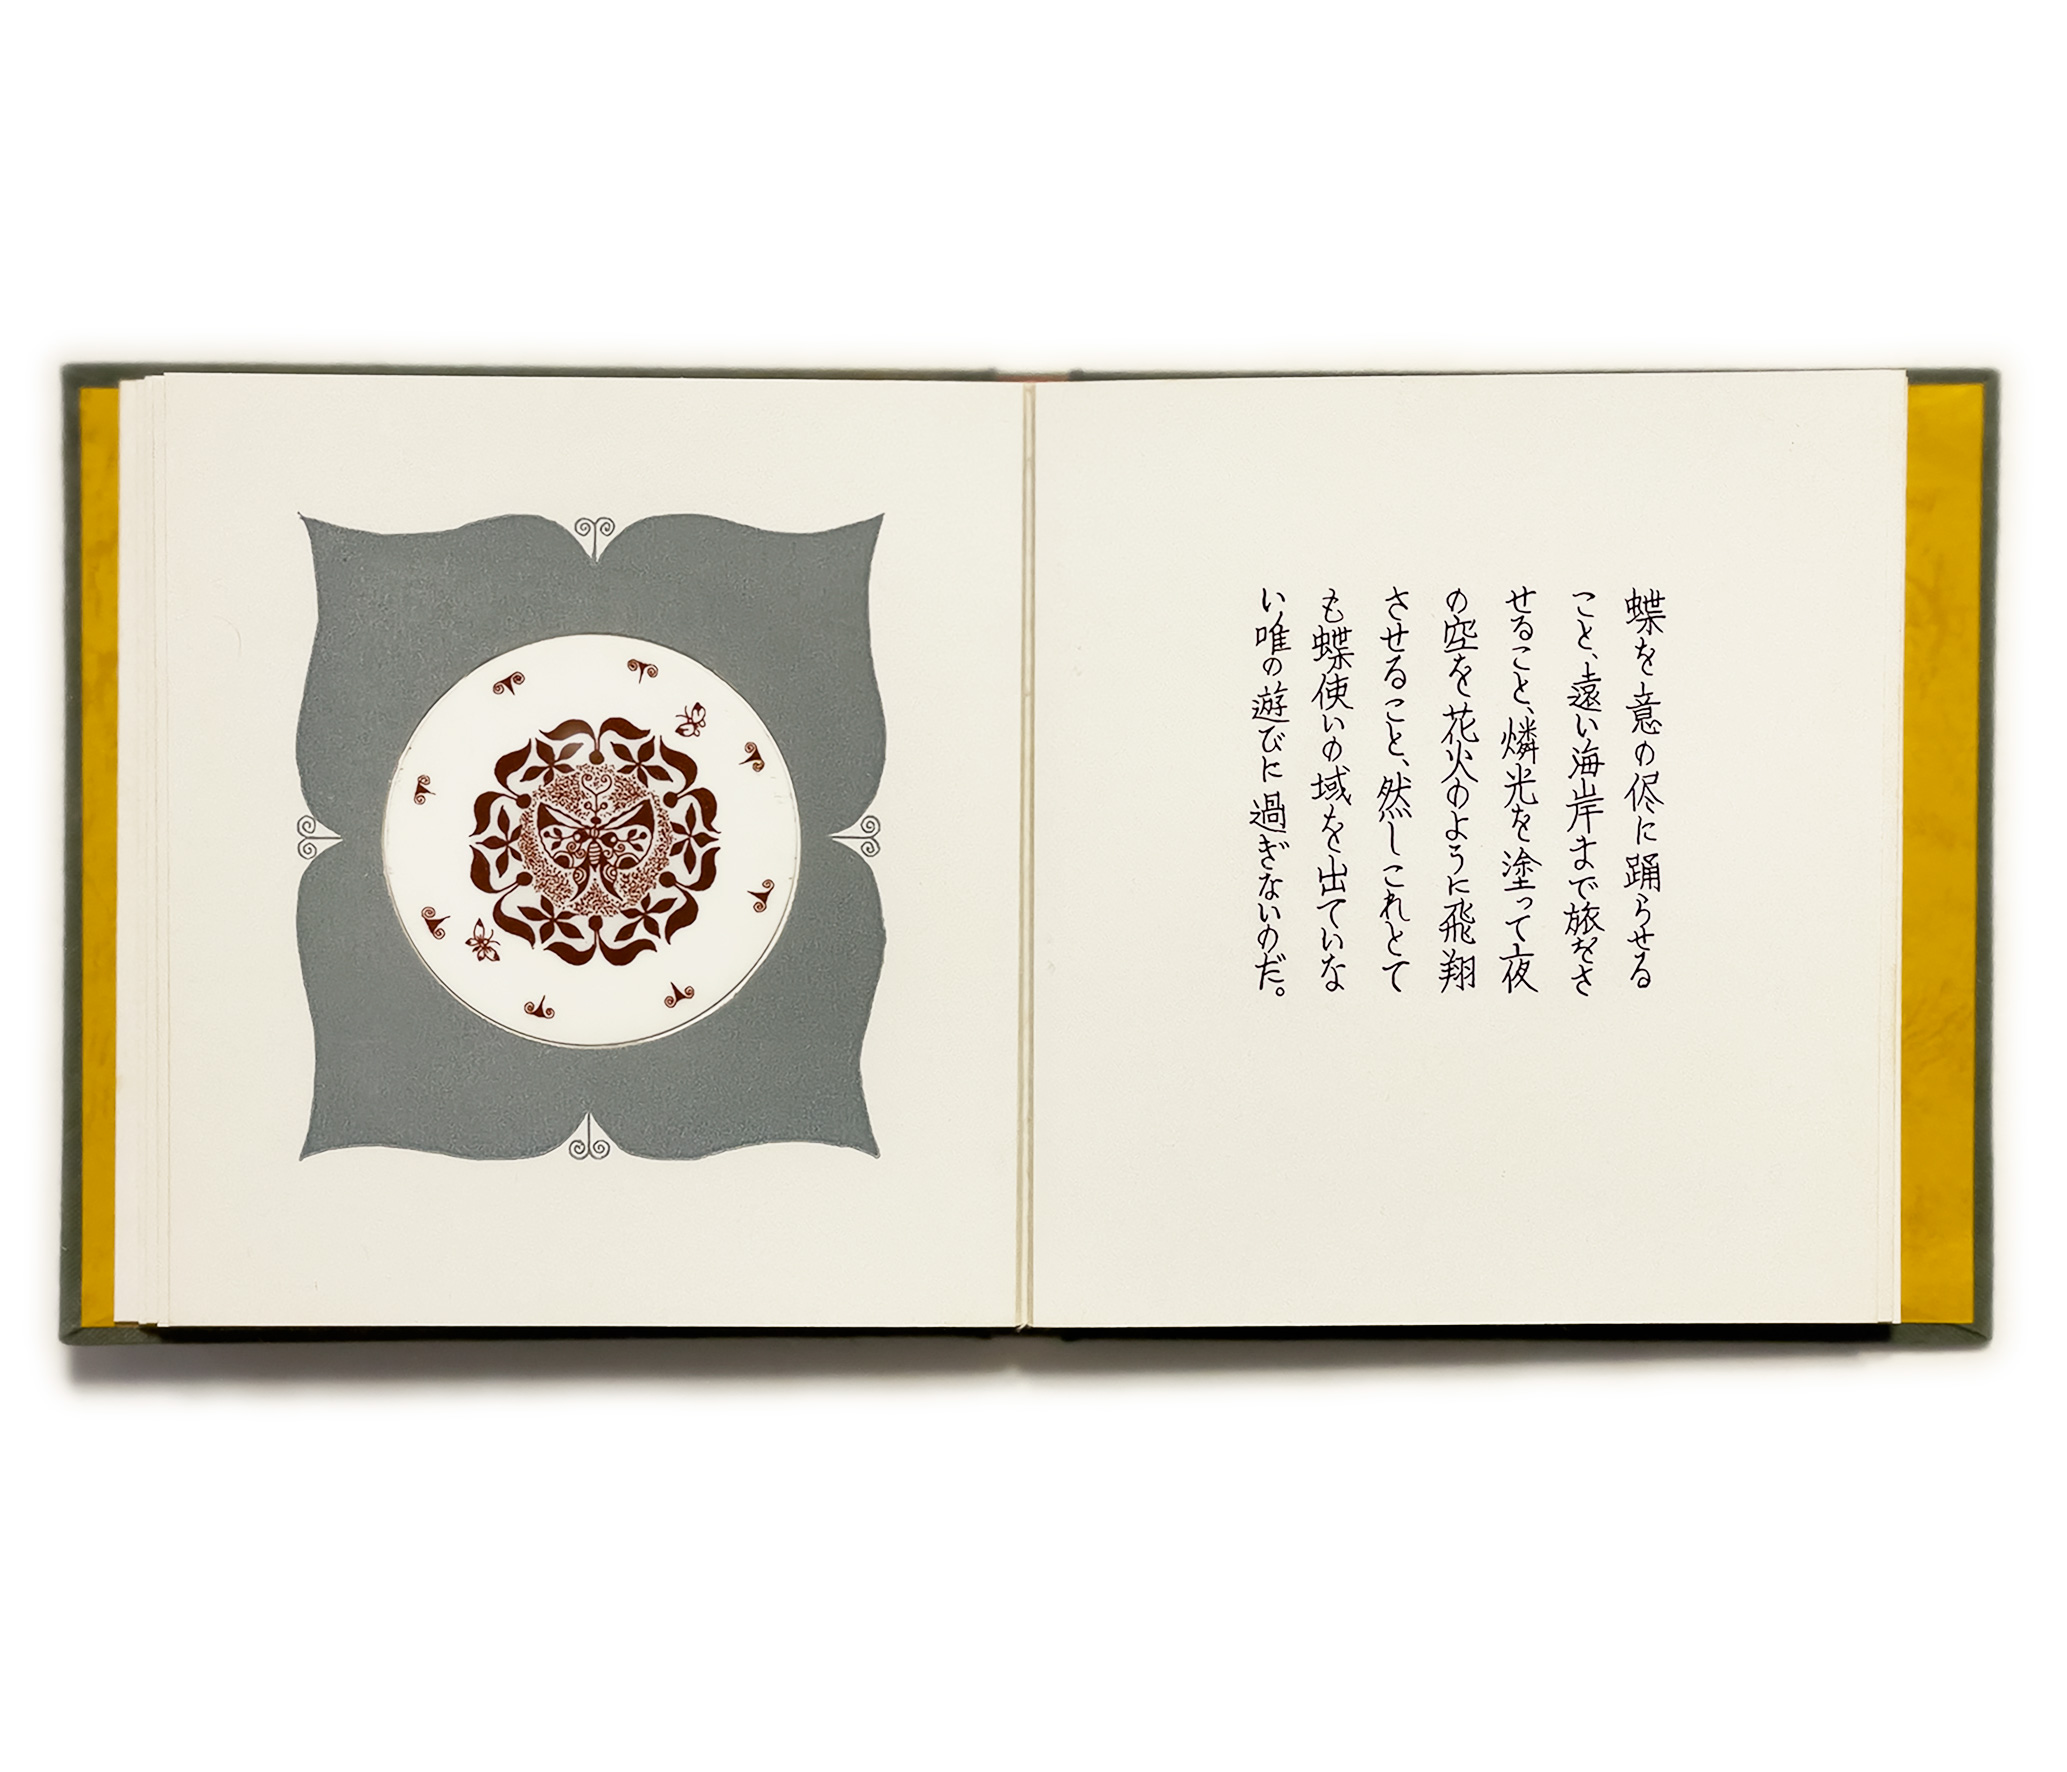 蝶を意の侭に踊らせる
こと、遠い海岸まで旅をさ
せること、燐光を塗って夜
の空を花火のように飛翔
させること、然しこれとて
も蝶使いの域を出ていな
い唯の遊びに過ぎないのだ。